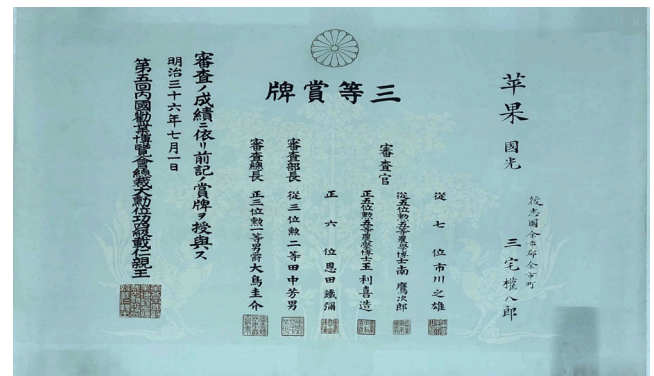 苹果 國光
後志國余市郡余市町
三宅權八郎
三等賞牌
審査官
從七位市川之雄
從五位勲五等農學博士南鷹次郎
正五位勲五等農學博士玉利喜造
正六位恩田鐵彌
審査部長 從三位勲二等田中芳男
審査總長 正三位勲一等男爵大鳥圭介
審査ノ成績ニ依リ前記ノ賞牌ヲ授與ス
明治三十六年七月一日
第五回内國勸業博覽會總裁大勲位功四級載仁親王